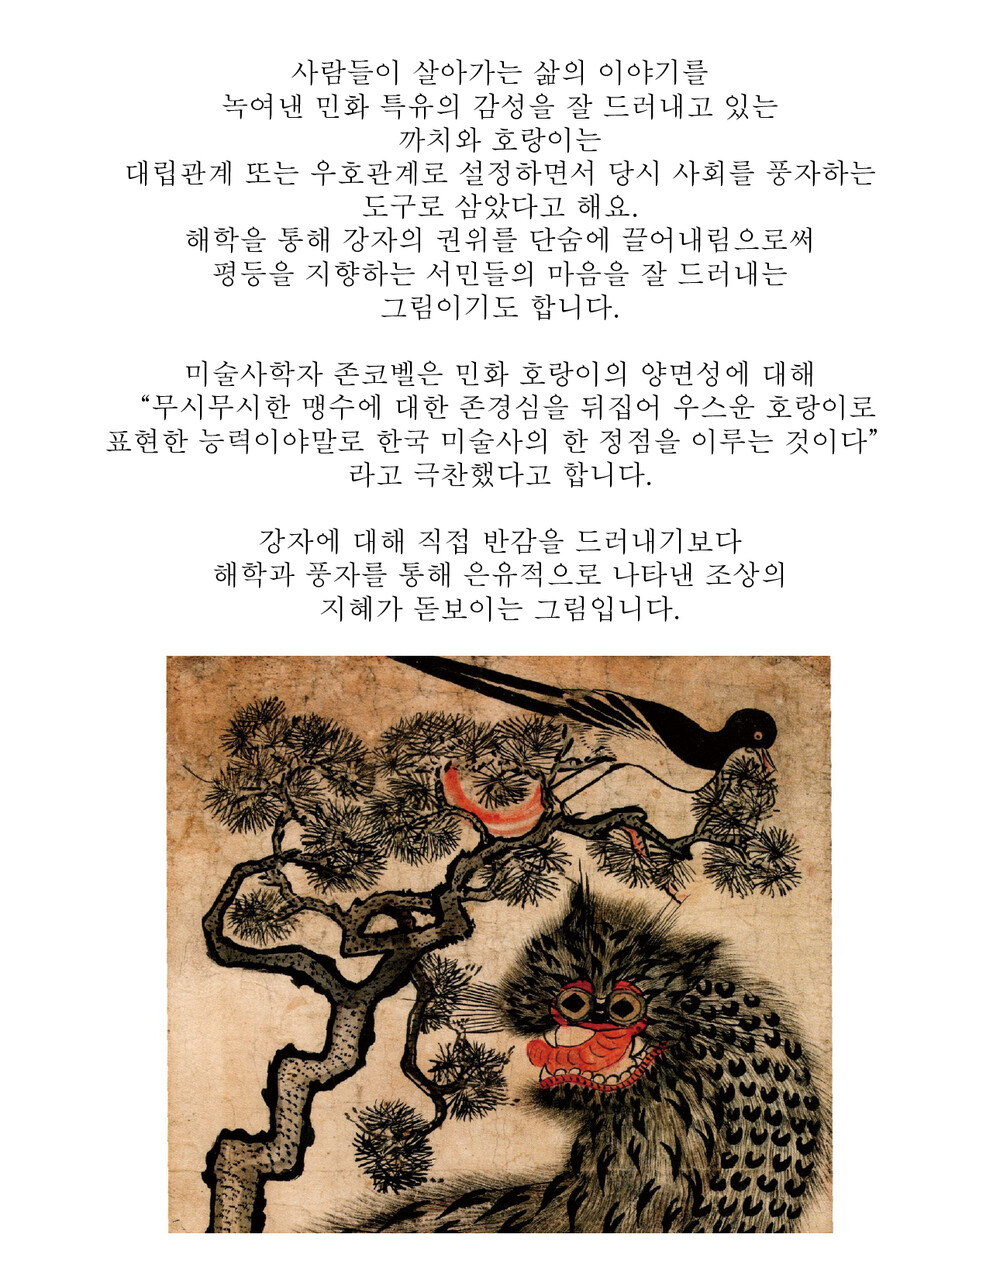 사람들이 살아가는 삶의 이야기를
녹여낸 민화 특유의 감성을 잘 드러내고 있는
까치와 호랑이는
대립관계 또는 우호관계로 설정하면서 당시 사회를 풍자하는
도구로 삼았다고 해요.
해학을 통해 강자의 권위를 단숨에 끌어내림으로써
평등을 지향하는 서민들의 마음을 잘 드러내는
그림이기도 합니다.
미술사학자 존코벨은 민화 호랑이의 양면성에 대해
“무시무시한 맹수에 대한 존경심을 뒤집어 우스운 호랑이로
표현한 능력이야말로 한국 미술사의 한 정점을 이루는 것이다”
라고 극찬했다고 합니다.
강자에 대해 직접 반감을 드러내기보다
해학과 풍자를 통해 은유적으로 나타낸 조상의
지혜가 돋보이는 그림입니다.